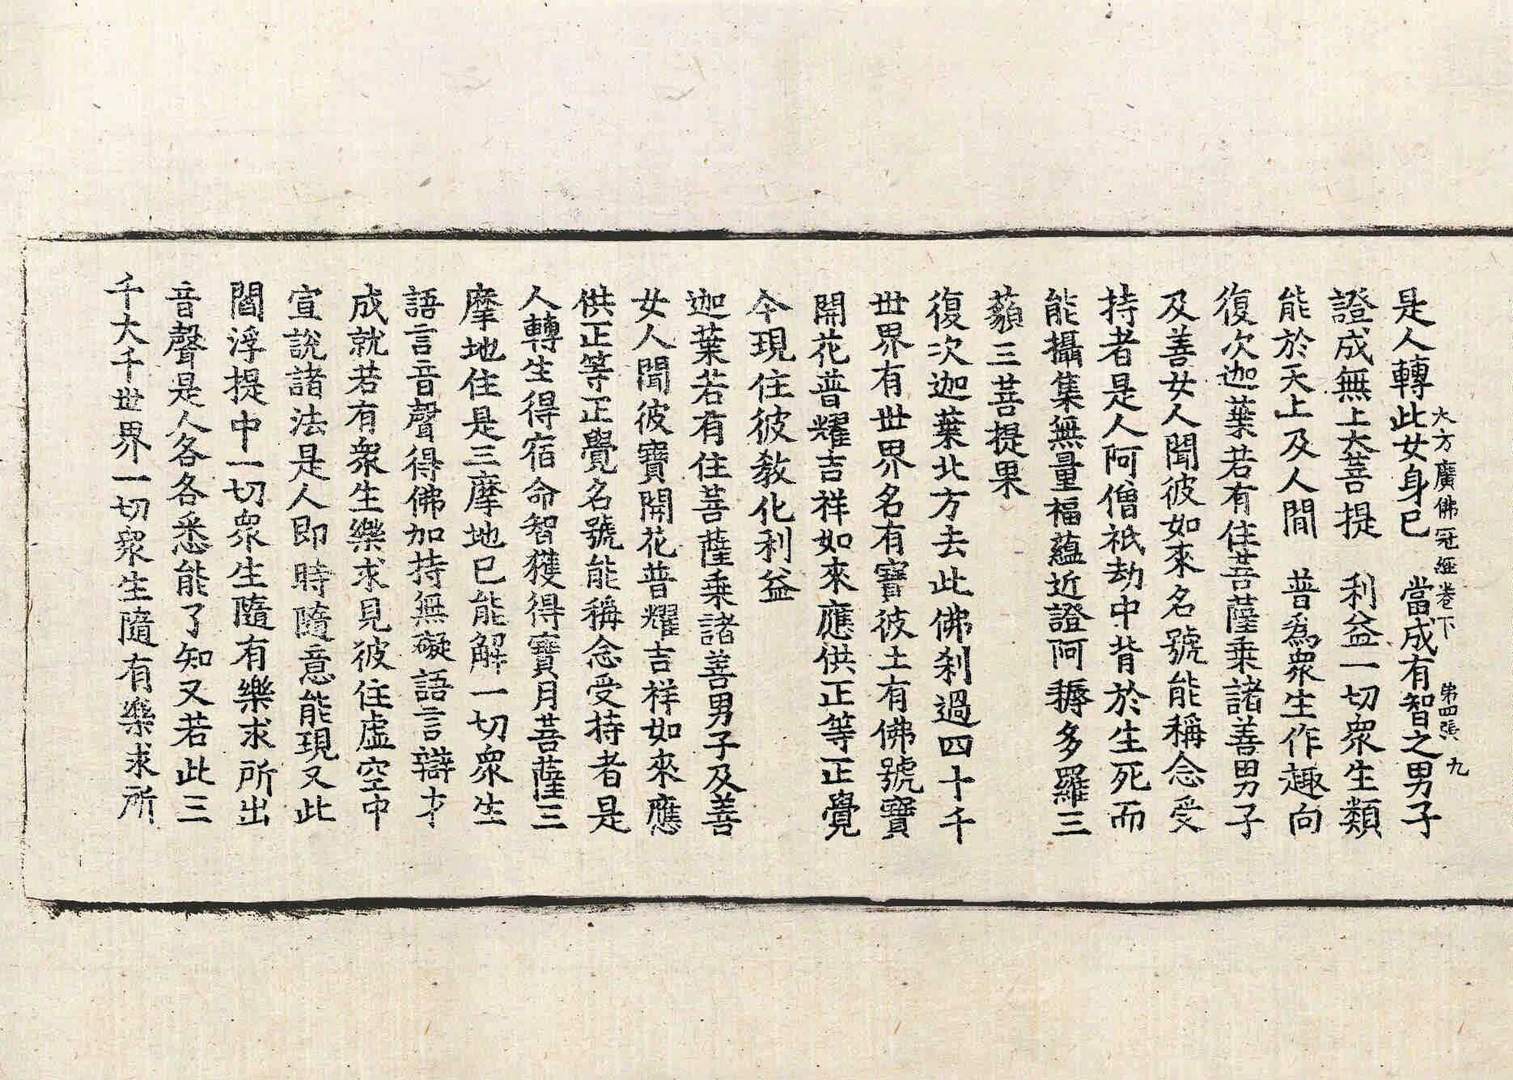 大方廣佛冠經卷下 第四張 九
是人轉此女身已 當成有智之男子
證成無上大菩提 利益一切眾生類
能於天上及人間 普為眾生作趣向
復次迦葉若有住菩薩乘諸善男子
及善女人聞彼如來名號能稱念受
持者是人阿僧祇劫中背於生死而
能攝集無量福蘊近證阿耨多羅三
藐三菩提果
復次迦葉北方去此佛剎過四十千
世界有世界名有寶彼土有佛號寶
開花普耀吉祥如來應供正等正覺
今現住彼教化利益
迦葉若有住菩薩乘諸善男子及善
女人聞彼寶開花普耀吉祥如來應
供正等正覺名號能稱念受持者是
人轉生得宿命智獲得寶月菩薩三
摩地住是三摩地已能解一切眾生
語言音聲得佛加持無礙語言辯才
成就若有眾生樂求見彼住虛空中
宣說諸法是人即時隨意能現又此
閻浮提中一切眾生隨有樂求所出
音聲是人各各悉能了知又若此三
千大千世界一切眾生隨有樂求所